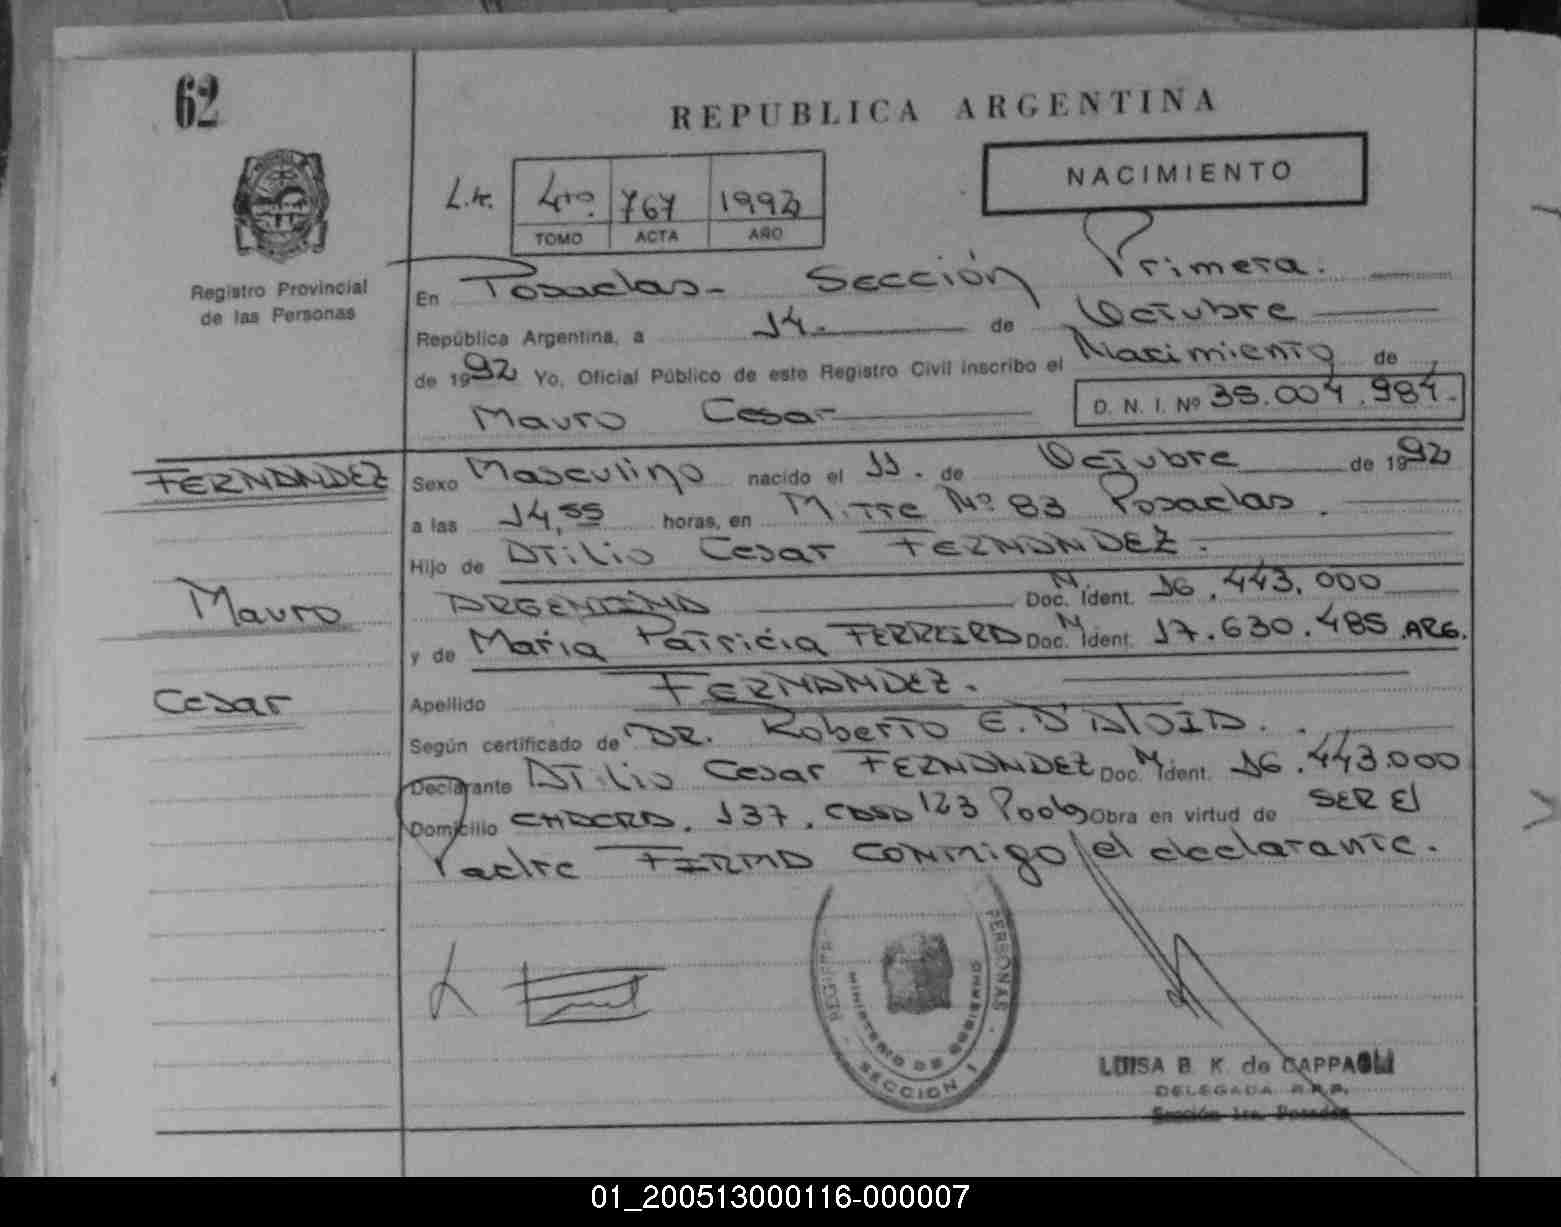 62
REPUBLICA ARGENTINA
NACIMIENTO
4to. 767 1992
TOMO ACTA AÑO
Registro Provincial
de las Personas
En Posadas - Sección Primera.
República Argentina, a 14. de Octubre
de 1992 Yo, Oficial Público de este Registro Civil inscribo el Nacimiento de
Mauro Cesar D. N. I. Nº 38.004.984.
FERNANDEZ
Sexo Masculino nacido el 11. de Octubre de 1992
a las 14,55 horas, en Mitre Nº 83 Posadas.
Hijo de Atilio Cesar FERNANDEZ.
Mauro
ARGENTINO Doc. N. Ident. 16.443.000
y de María Patricia FERREIRA Doc. N. Ident. 17.630.485 ARG.
Cesar
Apellido FERNANDEZ.
Según certificado de DR. Roberto E. D'AloIA.
Declarante Atilio Cesar FERNANDEZ Doc. N Ident. 16.443.000
Domicilio CHACRA. 137. CASA 123 Pdas Obra en virtud de SER El
Padre FIRMA CONMigo el declarante.
PERSONAS
MINISTERIO DE GOBIERNO
SECCION 1
LUISA B. K. de CAPPAOLI
DELEGADA R.P.P.
Sección 1ra. Posadas
01_200513000116-000007